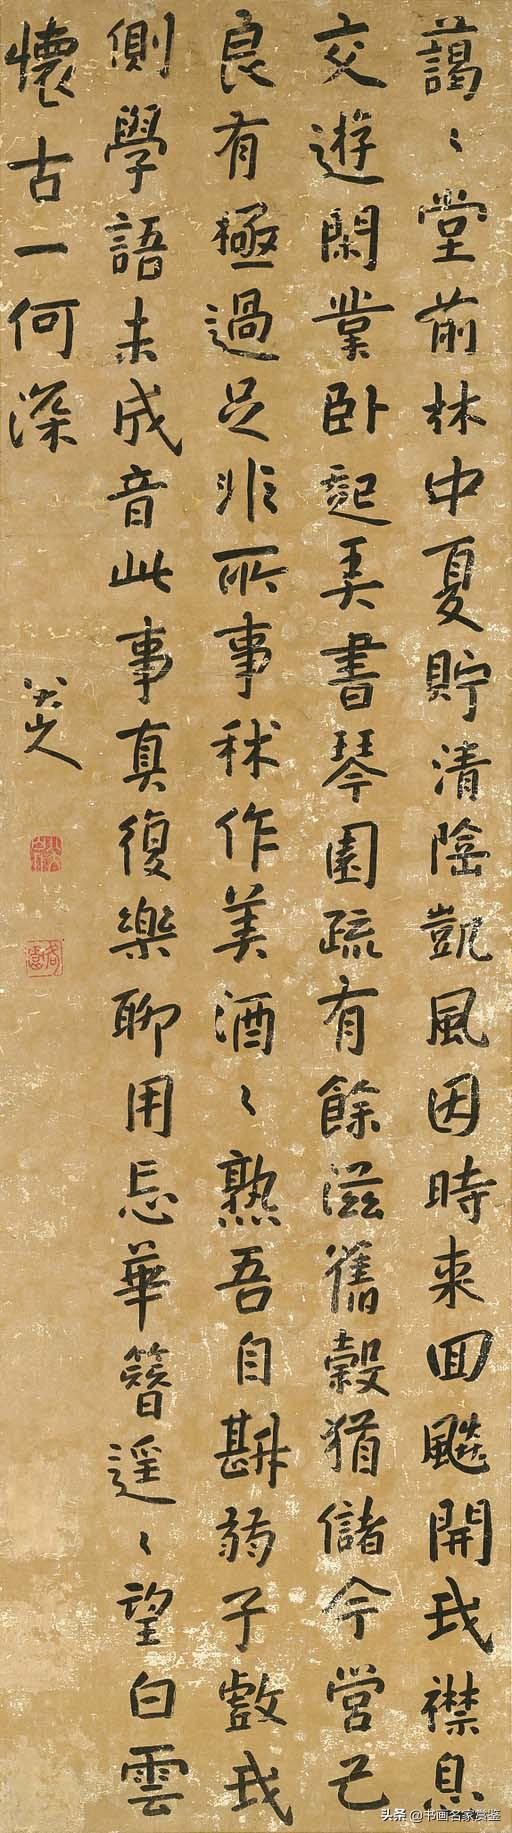 藹〻堂前林中夏貯清陰凱風因時来回飈開我襟息
交遊閑業卧起弄書琴園疏有餘滋舊穀猶儲今營己
良有極過足非所事秫作美酒〻熟吾自斟弱子戲我
側學語未成音此事真復樂聊用忘華簪遥〻望白雲
懷古一何深
八大山人
头条 @书画名家赏鉴